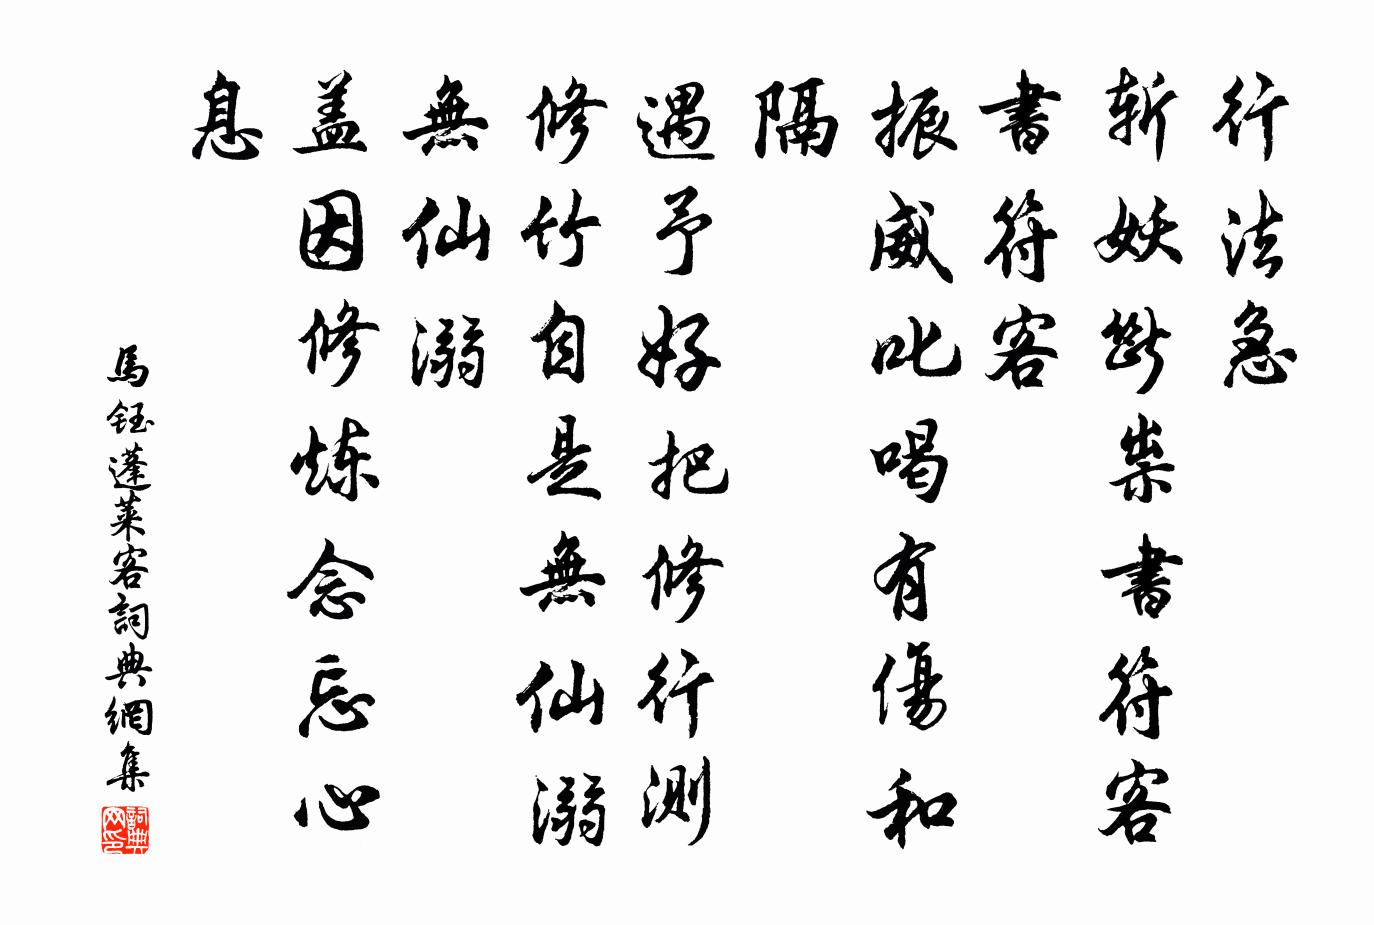 行法急
斬妖斷祟書符客
書符客
振威叱喝有傷和
隔
遇予好把修行測
修竹自是無仙溺
無仙溺
盖因修炼念忘心
息
馬鈺蓬莱客詞典網集
詞典
网印